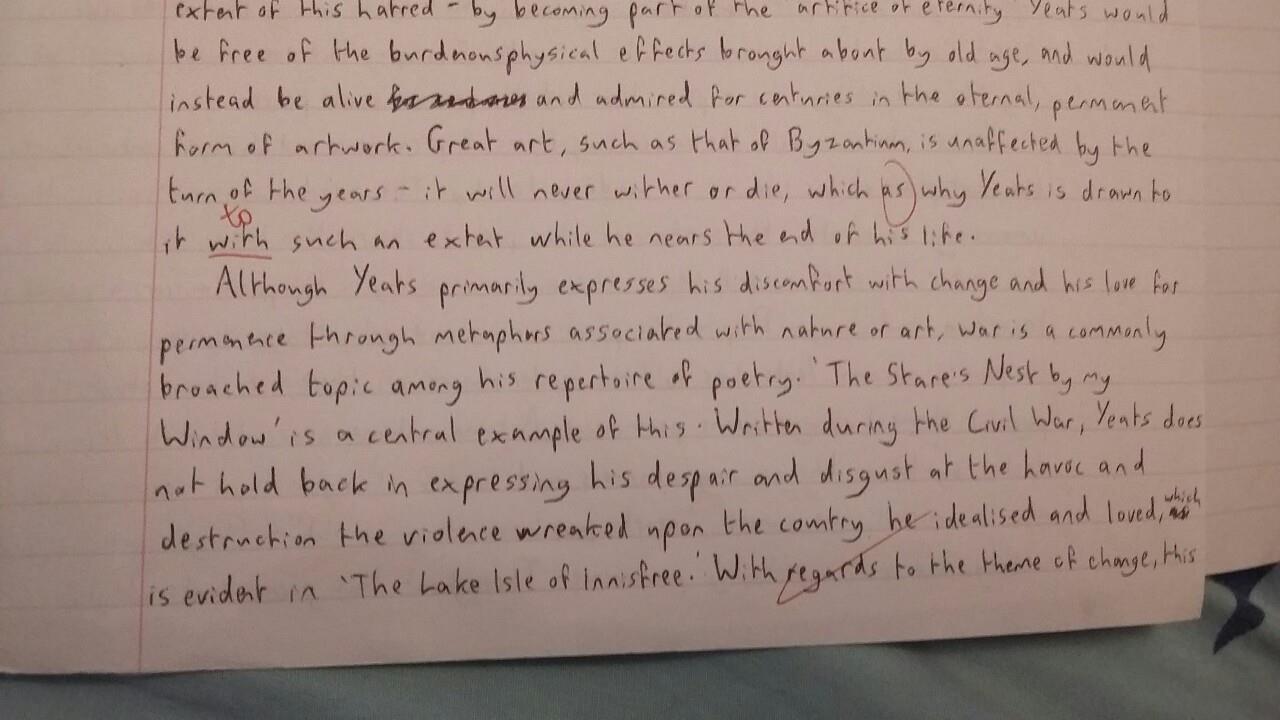 extent of this hatred - by becoming part of the artifice of eternity Yeats would
be free of the burdmonsphysical effects brought about by old age, and would
instead be alive and admired for centuries in the eternal, permanent
form of artwork. Great art, such as that of Byzantium, is unaffected by the
turn of the years - it will never wither or die, which as why Yeats is drawn to
to
it with such an extent while he nears the end of his life.
Although Yeats primarily expresses his discomfort with change and his love for
permanence through metaphors associated with nature or art, war is a commonly
broached topic among his repertoire of poetry. 'The Stare's Nest by my
Window' is a central example of this. Written during the Civil War, Yeats does
not hold back in expressing his despair and disgust at the havoc and
destruction the violence wreaked upon the country he idealised and loved, which
is evident in 'The Lake Isle of Innisfree.' With regards to the theme of change, this